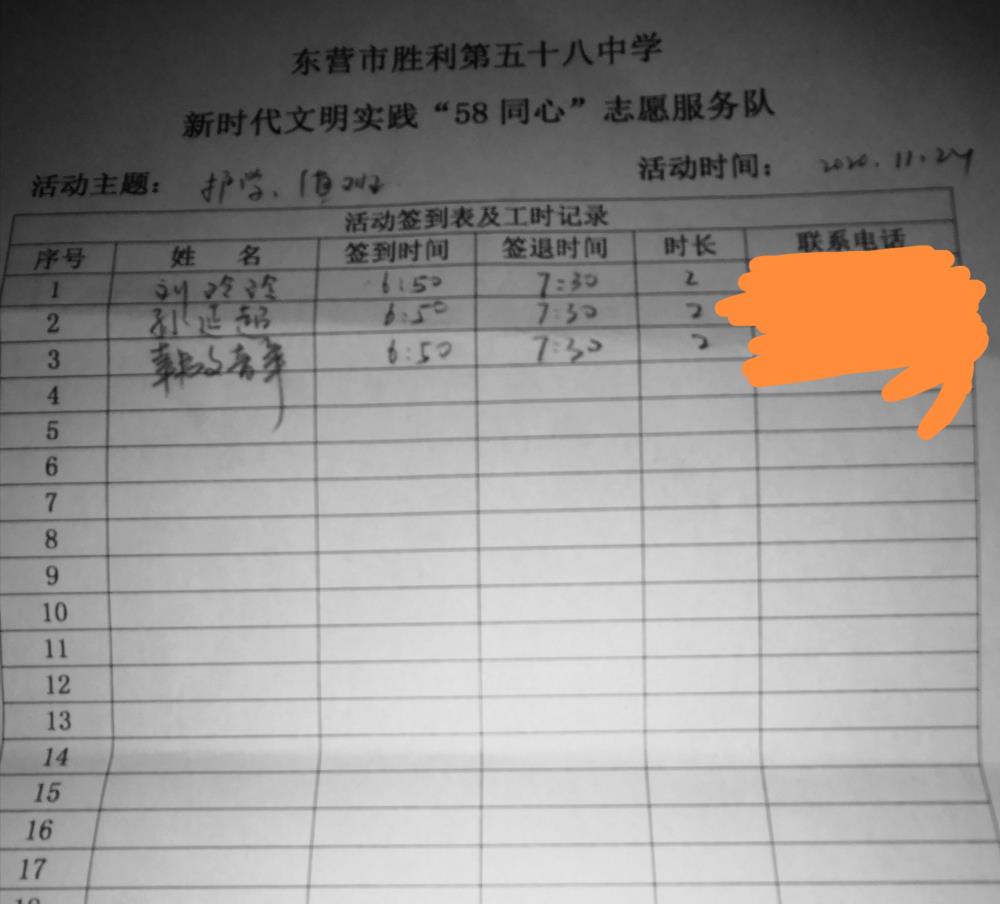 东营市胜利第五十八中学
新时代文明实践“58同心”志愿服务队
活动主题： 护学、值班 活动时间： 2020.11.24
活动签到表及工时记录
序号 姓 名 签到时间 签退时间 时长 联系电话
1 刘玲玲 6:50 7:30 2
2 孙延超 6:50 7:30 2
3 韩文 6:50 7:30 2
4
5
6
7
8
9
10
11
12
13
14
15
16
17
18